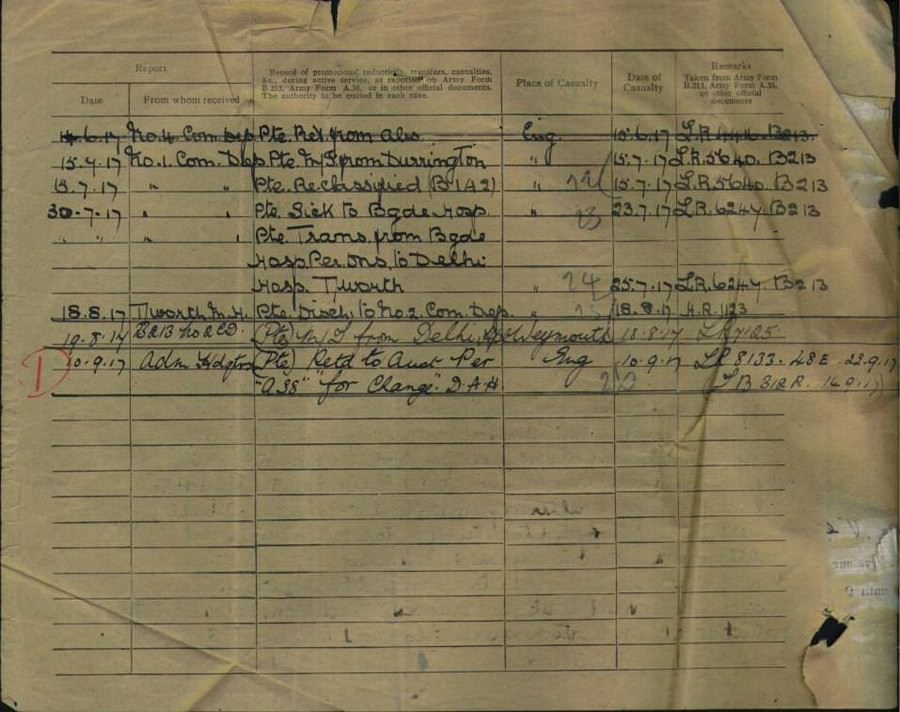 Report
Record of promotions, reductions, transfers, casualties, &c., during active service, as reported on Army Form B.213, Army Form A.36, or in other official documents. The authority to be quoted in each case.
Place of Casualty
Date of Casualty
Remarks
Taken from Army Form B.213, Army Form A.36, or other official documents
Date From whom received
14.6.17 No.4 Com. Dep Pte. Ret. from abs. Eng. 15.6.17 L.R. B213.
15.7.17 No.1 Com. Dep. Pte. M/I from Durrington " 15.7.17 L.R.5640. B213
15.7.17 " " Pte. Reclassified (B1A2) " 22 15.7.17 L.R.5640. B213
30.7.17 " " Pte. Sick to Bgde Hosp. " 23 23.7.17 L.R.6247. B213
" " " " Pte. Trans. from Bgde
Hosp. Per. Ons. to Delhi
Hosp. Tworth " 24 25.7.17 L.R.6247. B213
18.8.17 Tworth M.H. Pte. Disch. to No.2. Com. Dep. " 18.8.17 H.R. 1123
19.8.17 B213 No 2 CD. (Pte) M/I from Delhi Weymouth 18.8.17 LR 7125.
D 10.9.17 Adm Hdqtrs (Pte) Retd to Aust Per Eng 10.9.17 LR 8133. 23.9.17
"A35" for Change. D.A.H.